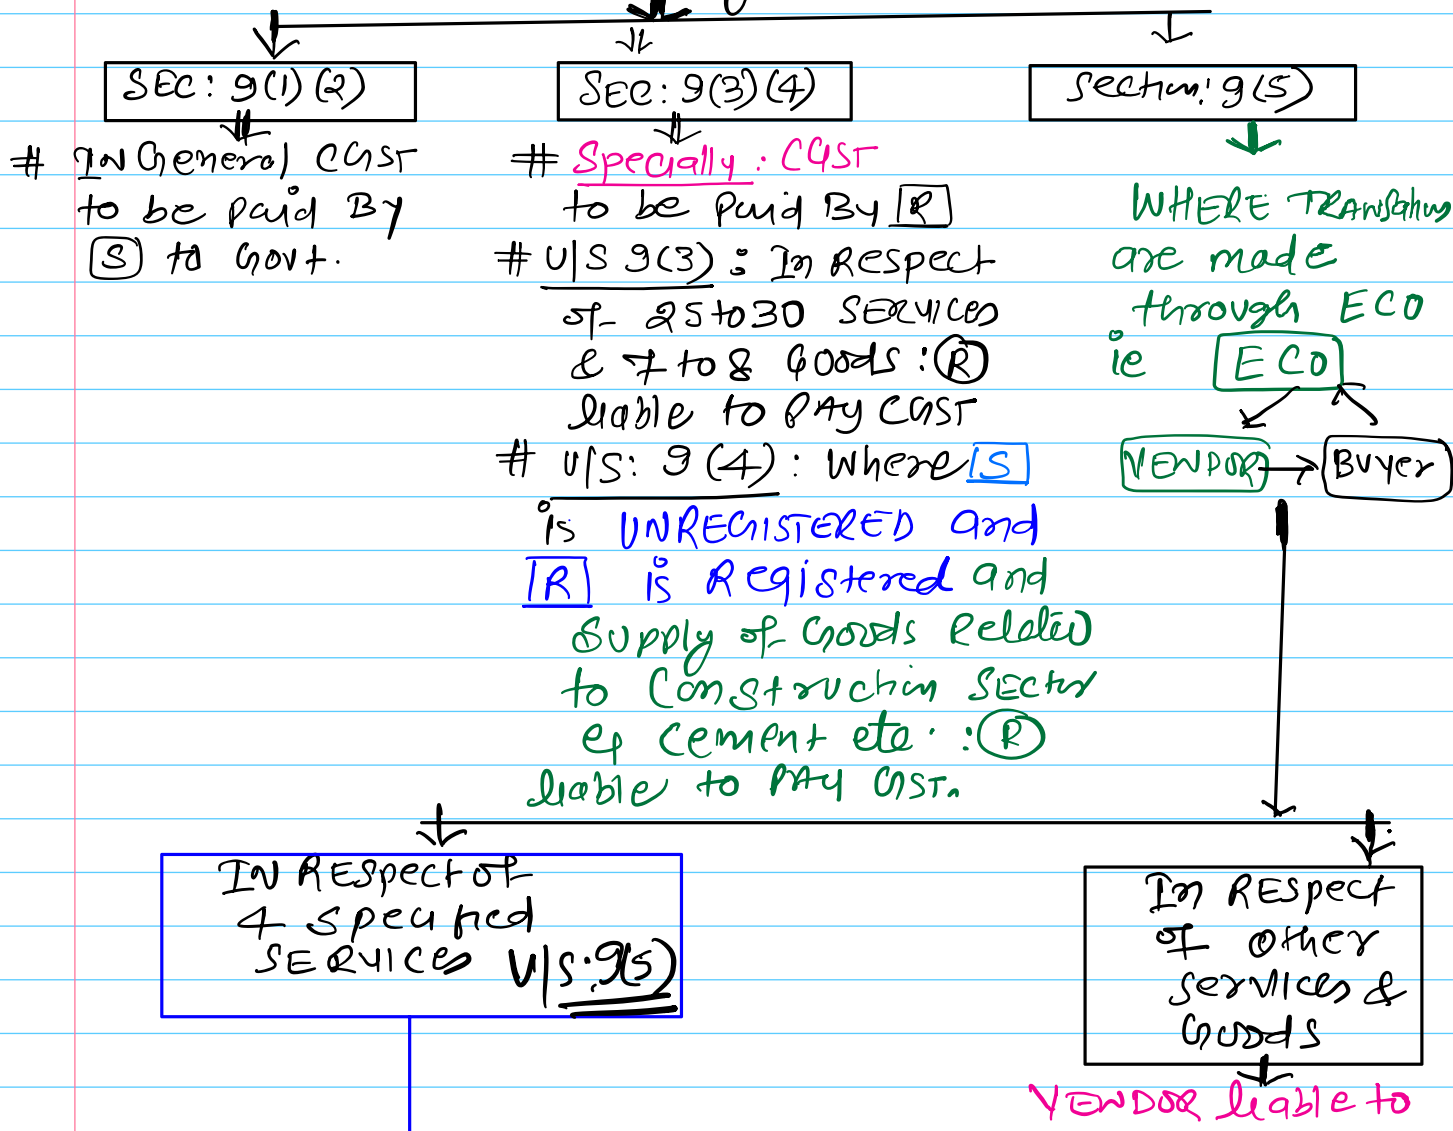 SEC: 9(1)(2)
# IN General CGST
to be paid By
S to Govt.
SEC: 9(3)(4)
# Specially: CGST
to be paid By R
# U/S 9(3): In Respect
of 25 to 30 SERVICES
& 7 to 8 Goods: R
liable to PAY CGST
# U/S: 9(4): Where S
is UNREGISTERED and
R is Registered and
Supply of Goods Related
to Construction SECTor
eg cement etc. : R
liable to PAY GST.
Section: 9(5)
WHERE TRANSactions
are made
through ECO
ie ECO
VENDOR
Buyer
IN RESpect of
4 Specified
SERVICes U/S.9(5)
In RESpect
of other
Services &
Goods
VENDOR liable to